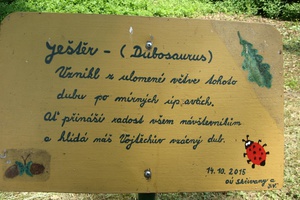 Ještěr - (Dubosaurus)
Vznikl z ulomené větve tohoto
dubu po mírných úpravách.
Ať přináší radost všem návštěvníkům
a hlídá náš Vojtěchův vzácný dub.
14. 10. 2015
OÚ